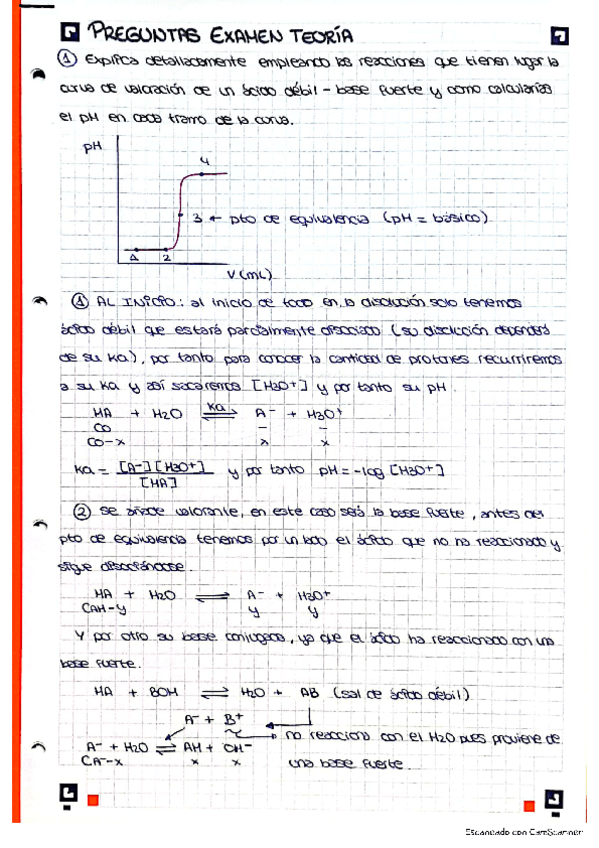 PREGUNTAS EXAMEN TEORÍA
① Explica detalladamente empleando las reacciones que tienen lugar la
curva de valoración de un ácido débil - base fuerte y como calcularías
el pH en cada tramo de la curva.
pH
4
3 ← pto de equivalencia (pH = básico)
1 2
V (mL)
① AL INICIO: al inicio de todo en la disolución solo tenemos
ácido débil que estará parcialmente disociado (su disolución dependerá
de su Ka), por tanto para conocer la cantidad de protones recurriremos
a su Ka y así sacaremos [H3O+] y por tanto su pH.
HA + H2O ⇌ Ka A- + H3O+
CO - -
CO-x x x
Ka = [A-][H3O+] / [HA] y por tanto pH = -log [H3O+]
② Se añade valorante, en este caso será la base fuerte, antes del
pto de equivalencia tenemos por un lado el ácido que no ha reaccionado y
sigue disociándose.
HA + H2O ⇌ A- + H3O+
CAH-y y y
Y por otro su base conjugada, ya que el ácido ha reaccionado con una
base fuerte.
HA + BOH ⇌ H2O + AB (sal de ácido débil)
A- + B+
→ no reacciona con el H2O pues proviene de
A- + H2O ⇌ AH + OH-
CA--x x x
una base fuerte.
Escaneado con CamScanner